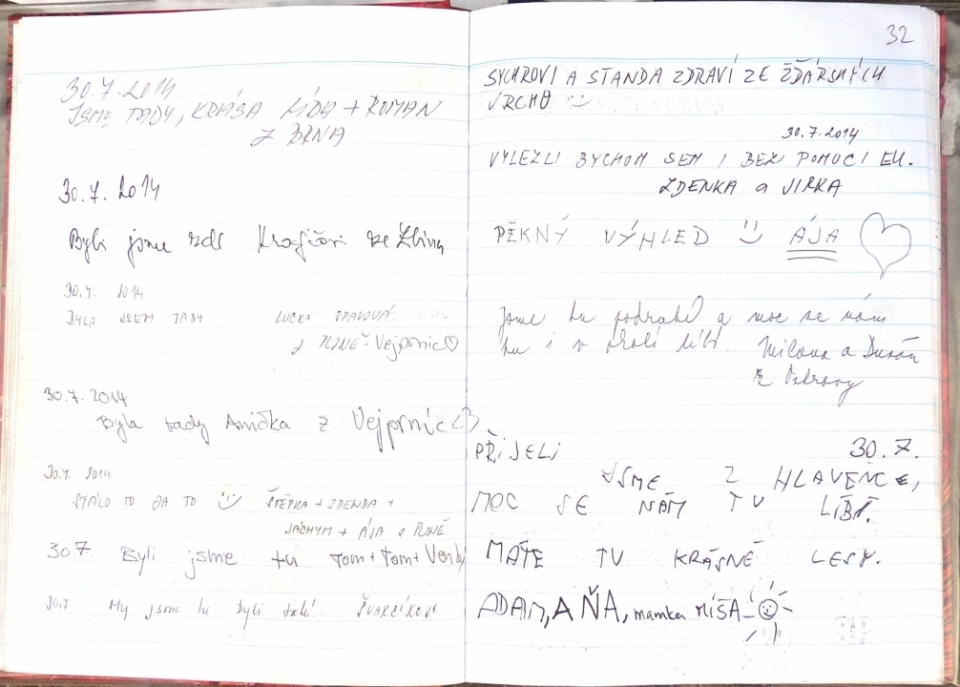 30.7.2014
JSME TADY, KRÁSA LÍDA + ROMAN
Z BRNA
30.7.2014
Byli jsme zde ze Zlína
30.7. 2014
BYLA JSEM TADY LUCKA
Z PLZNĚ-Vejprnic♡
30.7.2014
Byla tady Anička z Vejprnic♡
30.7. 2014
STÁLO TO ZA TO ŠTĚPKA + ZDENDA +
JÁCHYM + ÁJA Z PLZNĚ
30.7. Byli jsme tu Tom+Tom+Vendy
30.7 My jsme tu byli také ŠVARCÍKOVI
32
SYCHROVI A STANDA ZDRAVÍ ZE ŽĎÁRSKÝCH
VRCHŮ
30.7.2014
VYLEZLI BYCHOM SEM I BEZ POMOCI EU.
ZDENKA a JIRKA
PĚKNÝ VÝHLED ÁJA
Jsme tu podruhé a moc se nám
tu i v okolí líbí. Milena a Dušan
z Ostravy
PŘIJELI 30.7.
JSME Z HLAVENCE,
MOC SE NÁM TU LÍBÍ.
MÁTE TU KRÁSNÉ LESY.
ADAM, AŇA, mamka MÍŠA